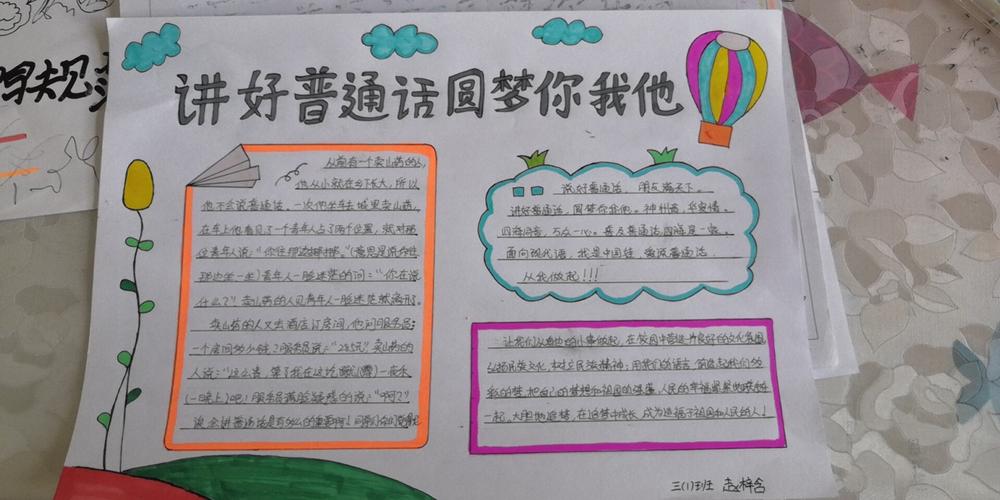 讲好普通话圆梦你我他
从前有一个卖山药的人,
他从小就在乡下长大,所以
他不会说普通话。一次他坐车去城里卖山药,
在车上他看见了一个青年人占了两个位置,就对那
位青年人说:“你往那边
那边坐一坐)青年人一脸迷茫的问:“你在说
什么?”卖山药的人见青年人一脸迷茫就离开了。
卖山药的人又去酒店订房间,他问服务员:
一个房间多少钱?服务员说:“285元”卖山药的
人说:“这么贵,等了我在这吃
(一晚上)吧!服务员满脸疑惑的说:“啊?”
说会讲普通话是有多么的重要啊!
说好普通话,朋友满天下。
讲好普通话,圆梦你我他。神州音,华夏情。
四海同音,万众一心。喜发普通话四海是一家。
面向现代语,我是中国娃,爱说普通话,
从我做起!!!
让我们从身边的小事做起,在校园中营造一片良好的文化氛围
弘扬民族文化,树立民族精神;用我们的语言,
彩的梦,把自己的梦想和祖国的健康、人民的幸福紧紧地联系在
一起。大胆地追梦,在追梦中成长,成为造福于祖国和人民的人!
三(1)班 赵梓含